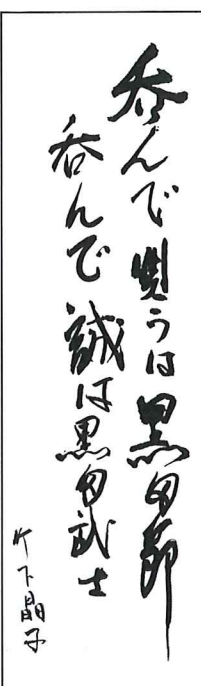 呑んで唄うは黒田節
呑んで誠は黒田武士
竹下晶子